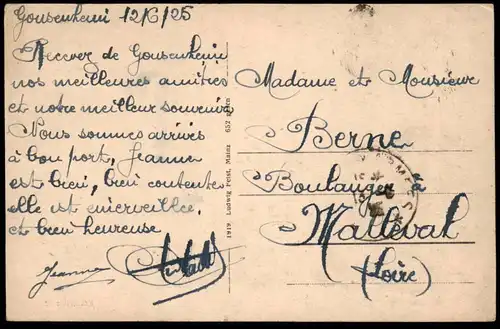 Gousenheim 12/6/25
Recevez de Gousenheim
nos meilleures amitiés
et notre meilleur souvenir
Nous sommes arrivés
à bon port, Jeanne
est bien, bien contente
elle est emerveillée
et bien heureuse
Jeanne
1919 Ludwig Feist, Mainz
Madame et Monsieur
Berne
Boulanger à
Malleval
(Loire)